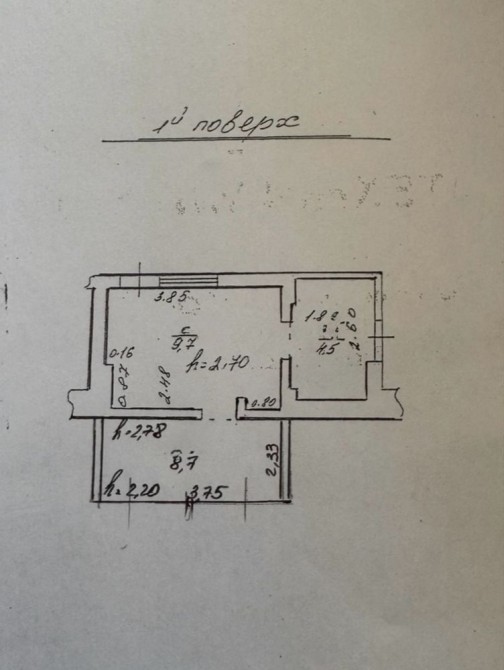 1й поверх
3.85
1.82
2.60
4.5
с
9,7
h=2,70
0.16
0.87
2.48
0.80
h=2,78
8,7
2,33
h=2,20
3,75